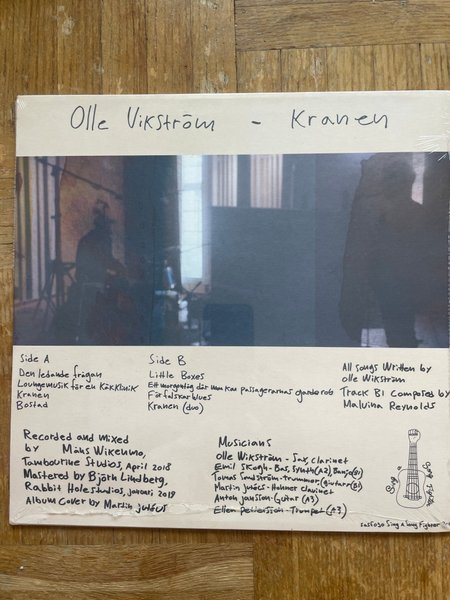 Olle Vikström - Kranen
Side A
Den ledande frågan
Loungemusik för en Käkklinik
Kranen
Bostad
Side B
Little Boxes
Ett morgontåg där man kan passagerarnas
Förfalskarblues
Kranen (duo)
All songs written by
Olle Wikström
Track B1 Composed by
Malvina Reynolds
Recorded and mixed
by Måns Wikenmo,
Tambourine Studios, April 2018
Mastered by Björn Lindberg,
Rabbit Hole studios, januari 2019
Album Cover by Martin Jutéus
Musicians
Olle Wikström - Sax, clarinet
Emil Skogh - Bas, Synth (A2), Banjo (B1)
Tomas Sundström - trummor, (guitarr B1)
Martin Jutéus - Hohner clavinet
Anton Jansson - Gitar (A3)
Ellen Pettersson - Trumpet (A3)
Sing A
SASF030 Sing A Long Fighter